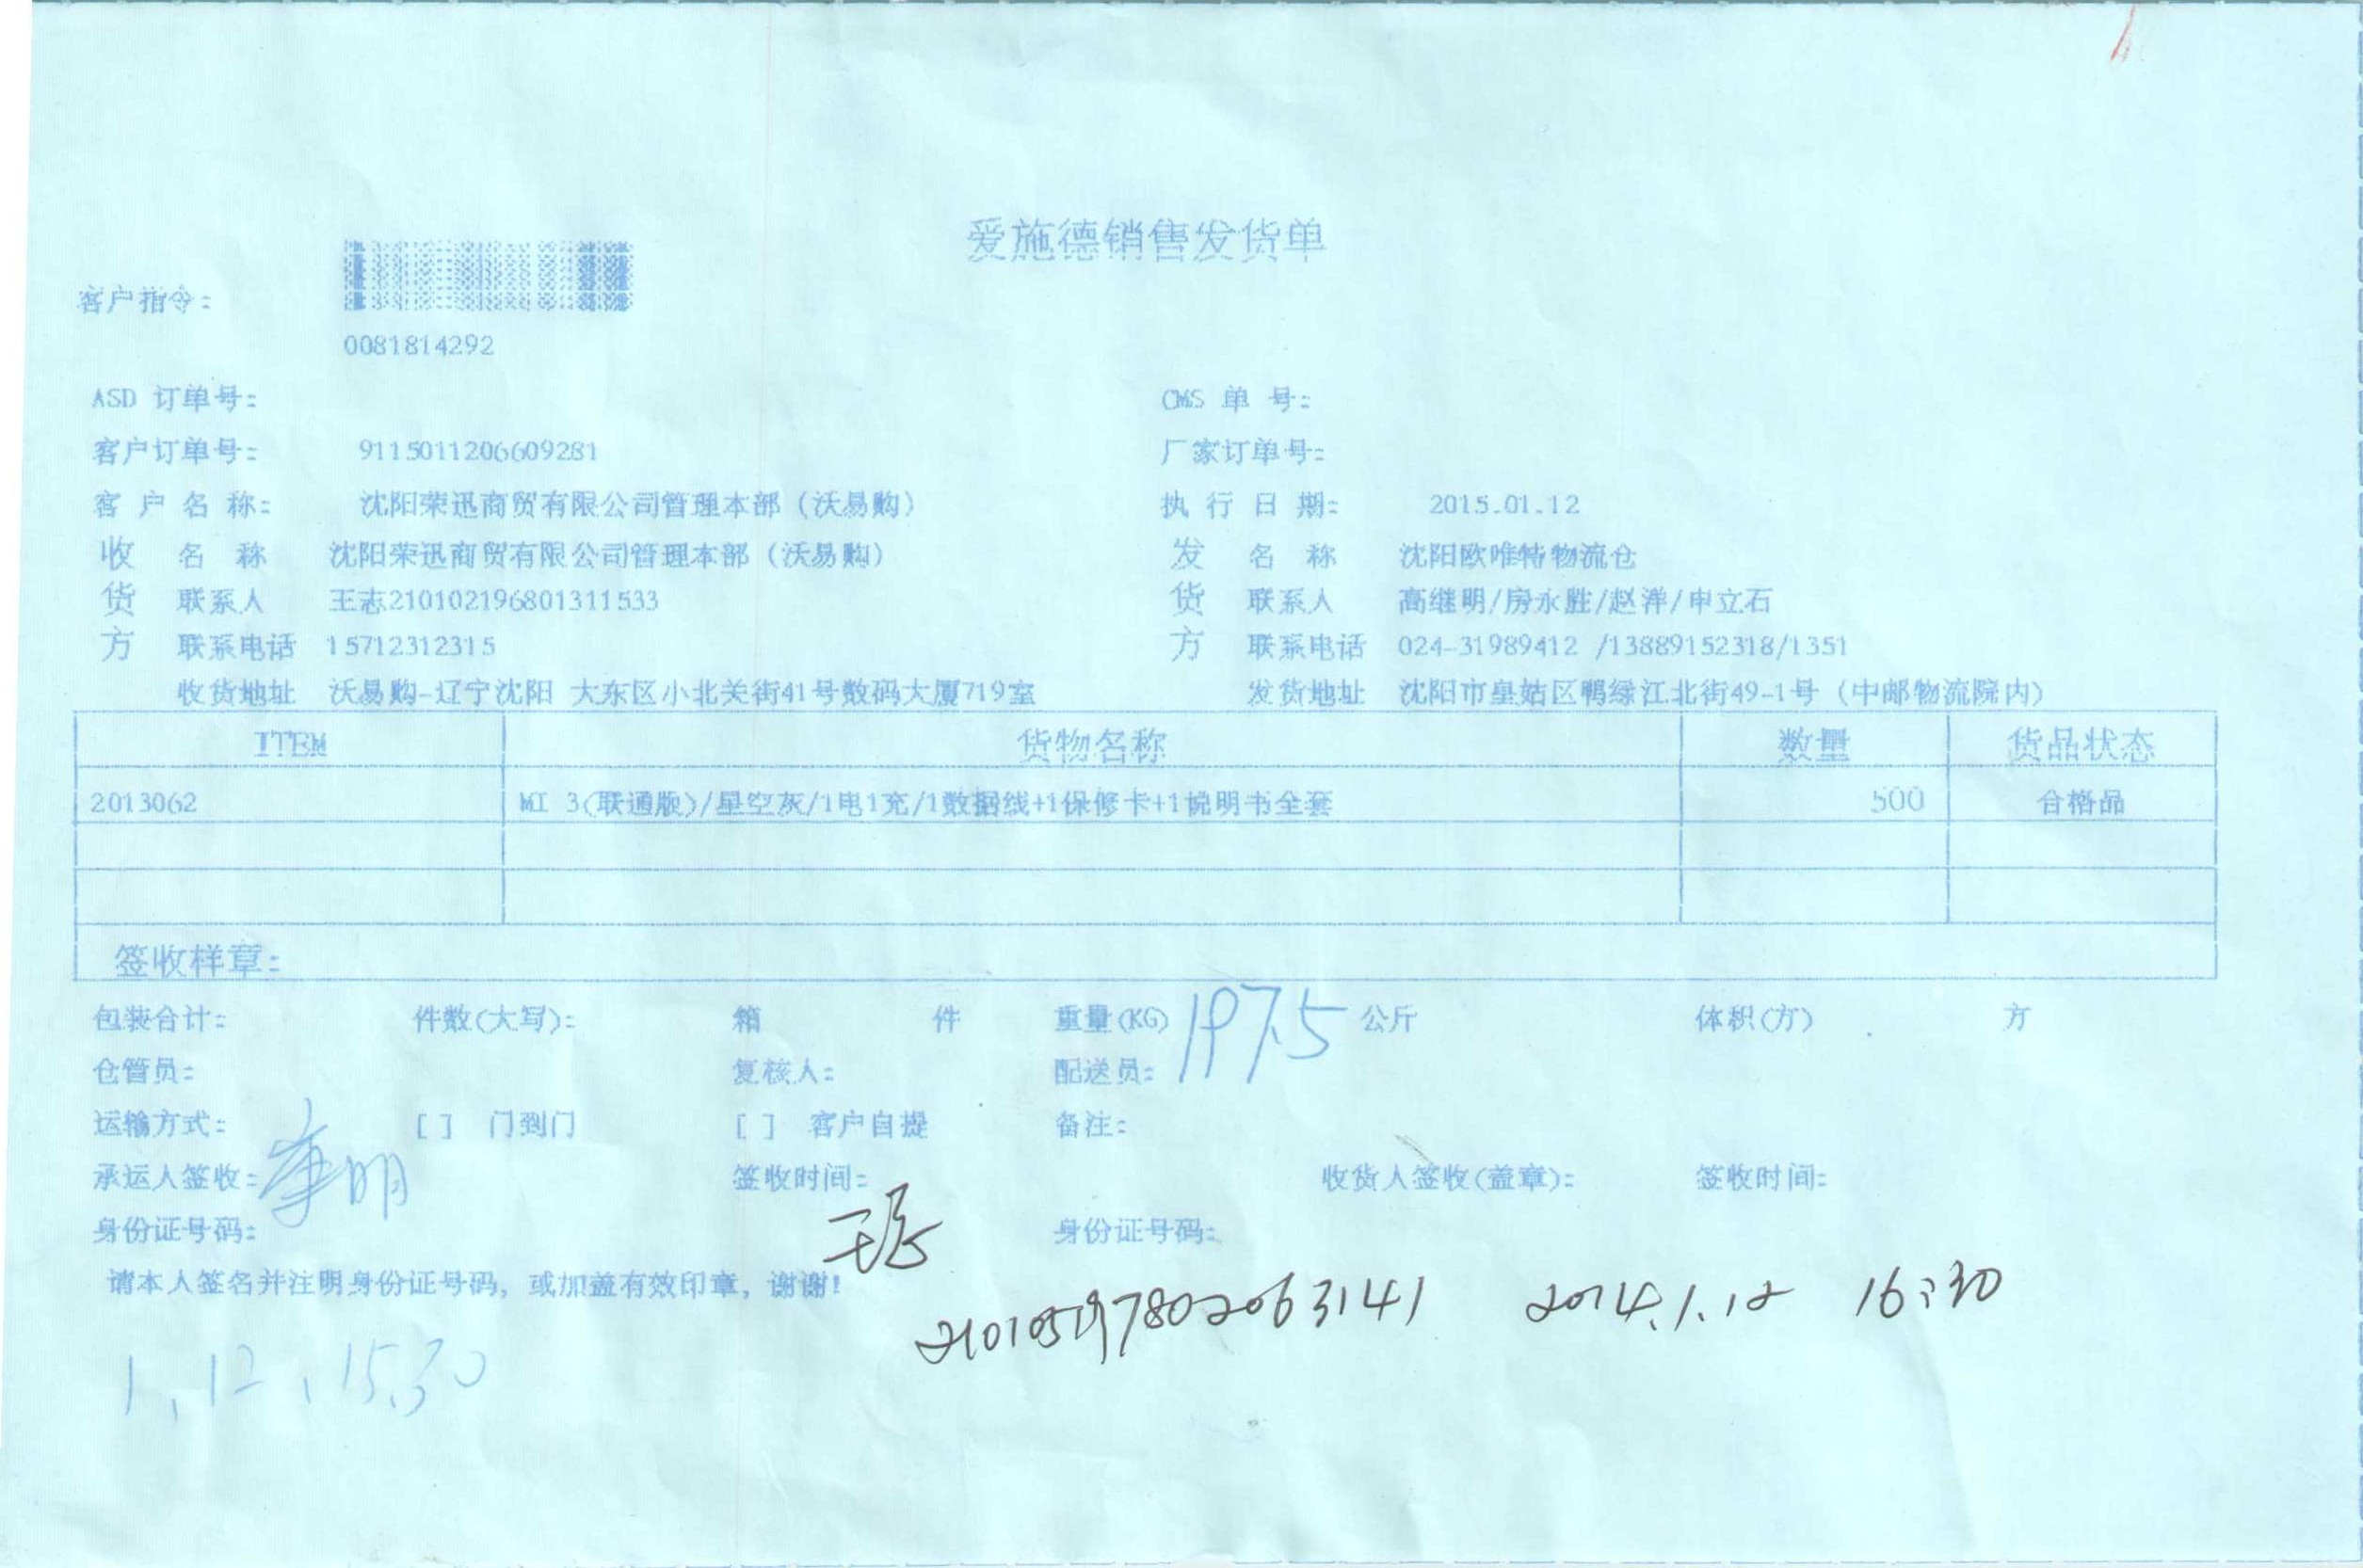 爱施德销售发货单
客户指令:
0081814292
ASD 订单号: CMS 单 号:
客户订单号: 9115011206609281 厂家订单号:
客 户 名 称: 沈阳荣迅商贸有限公司管理本部（沃易购） 执 行 日 期: 2015.01.12
收 名 称 沈阳荣迅商贸有限公司管理本部（沃易购） 发 名 称 沈阳欧唯特物流仓
货 联系人 王志210102196801311533 货 联系人 高继明/房永胜/赵洋/申立石
方 联系电话 15712312315 方 联系电话 024-31989412 /13889152318/1351
收货地址 沃易购-辽宁沈阳 大东区小北关街41号数码大厦719室 发货地址 沈阳市皇姑区鸭绿江北街49-1号（中邮物流院内）
ITEM 货物名称 数量 货品状态
2013062 MI 3(联通版)/星空灰/1电1充/1数据线+1保修卡+1说明书全套 500 合格品
签收样章:
包装合计: 件数(大写): 箱 件 重量(KG) 197.5 公斤 体积(方) 方
仓管员: 复核人: 配送员:
运输方式: [ ] 门到门 [ ] 客户自提 备注:
承运人签收: 签收时间: 收货人签收(盖章): 签收时间:
身份证号码: 身份证号码:
请本人签名并注明身份证号码，或加盖有效印章，谢谢!
210105197802063141 2014.1.12 16:30
1.12.15.30